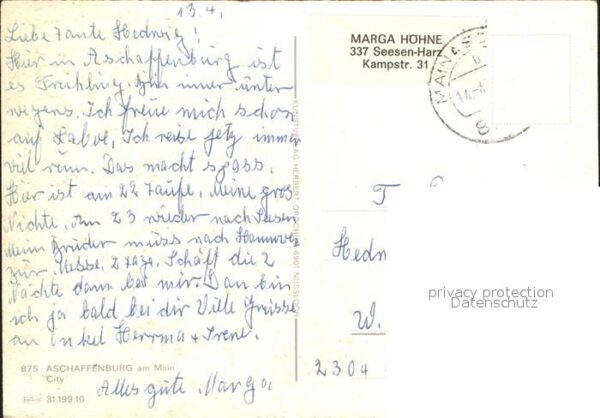 13.4.
Liebe Tante Hedwig!
Hier in Aschaffenburg ist
es Frühling. Bin immer unter
wegens. Ich freue mich schon
auf Laboe, Ich reise jetz immer
viel rum. Das macht spass.
Hier ist am 22 Taufe, Meine gros
Nichte, Am 23 wieder nach Seesen
Mein Brüder muss nach Hannover
zür Messe, 2 Tage, Schäft die 2
Nächte dann bei mir. Dan bin
ich ja bald bei dir Viele Grüsse
an Onkel Herrma + Irene.
Alles gute Marga
875 ASCHAFFENBURG am Main
City
31.199.10
KUNSTVERLAG HERBERT 6907 NUSSLOCH
MARGA HÖHNE
337 Seesen-Harz
Kampstr. 31
MAIN-
Hedw
W.
2304
privacy protection
Datenschutz